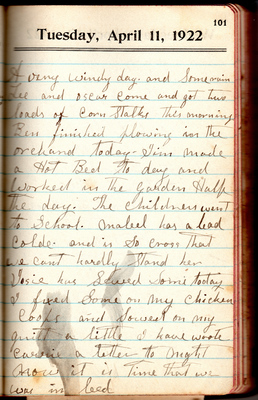 101
Tuesday, April 11, 1922
A very windy day. and Some rain
Lee and oscar come and got two
loads of Corn Stalks this morning
Ben finished plowing in the
orchand today. Jim made
a Hot Bed to day and
worked in the Garden Half
the day. The Childrens went
to School. Mabeel has a bad
Colde. and is So cross that
we cant hardly Stand her
Josie has Sewed Some today
I fixed Some on my Chicken
Coops and Sowed on my
quilt a little I have wrote
Carrie a letter to night
Now it is Time that we
was in bed